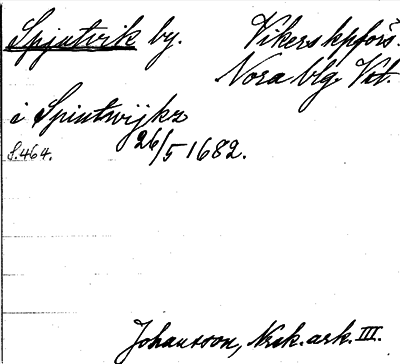 Spjutvik by. Vikers kpförs.
Nora blg. Vstm.
i Spiutwijkz
S. 464. 26/5 1682.
Johansson, Krok. ark. III.